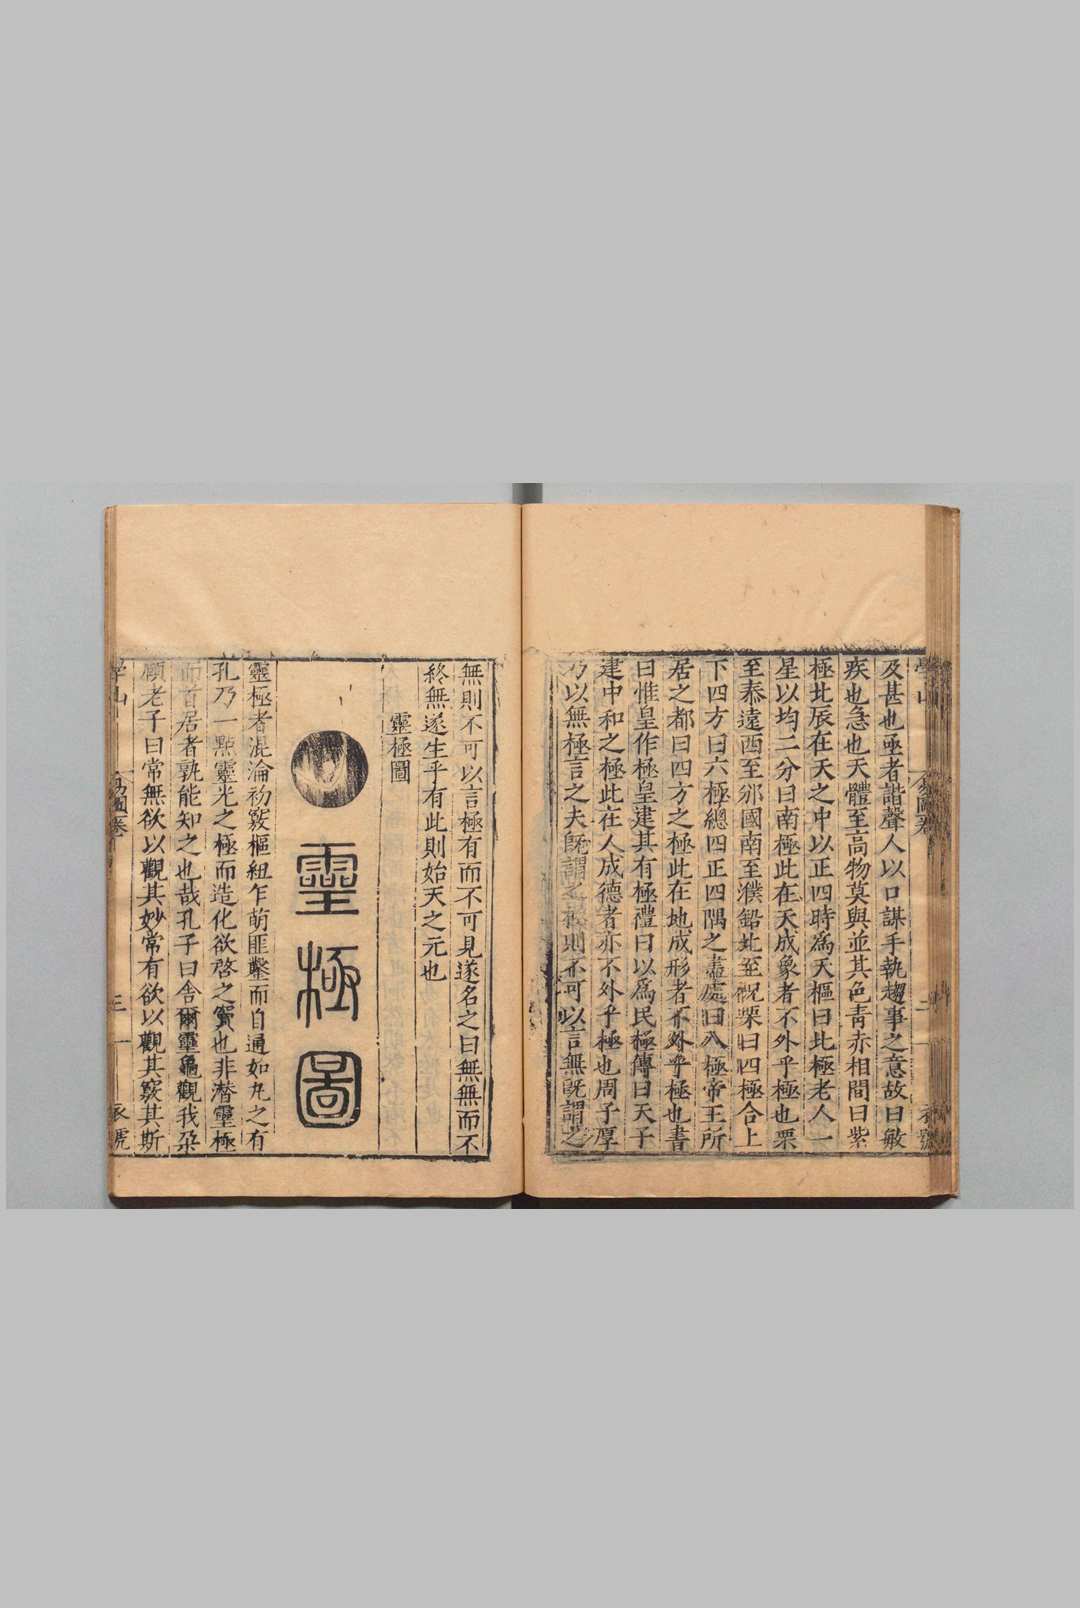 及甚也亟者諧聲人以口謀手執趨事之意故曰敏
疾也急也天體至高物莫與並其色青赤相間曰紫
極北辰在天之中以正四時為天樞曰北極老人一
星以均二分曰南極此在天成象者不外乎極也栗
至泰遠西至邠國南至濮鉛北至祝栗曰四極合上
下四方曰六極總四正四隅之盡處曰八極帝王所
居之都曰四方之極此在地成形者不外乎極也書
曰惟皇作極皇建其有極禮曰以為民極傳曰天子
建中和之極此在人成德者亦不外乎極也周子厚
乃以無極言之夫既謂之極則不可以言無既謂之
無則不可以言極有而不可見遂名之曰無無而不
終無遂生乎有此則始天之元也
靈極圖
靈極圖
靈極者混淪初竅樞紐乍萌匪鑿而自通如丸之有
孔乃一點靈光之極而造化欲啓之竇也非潛靈極
而首居者孰能知之也哉孔子曰舍爾靈龜觀我朶
頤老子曰常無欲以觀其妙常有欲以觀其竅其斯
學山
易圖卷
三
衣號